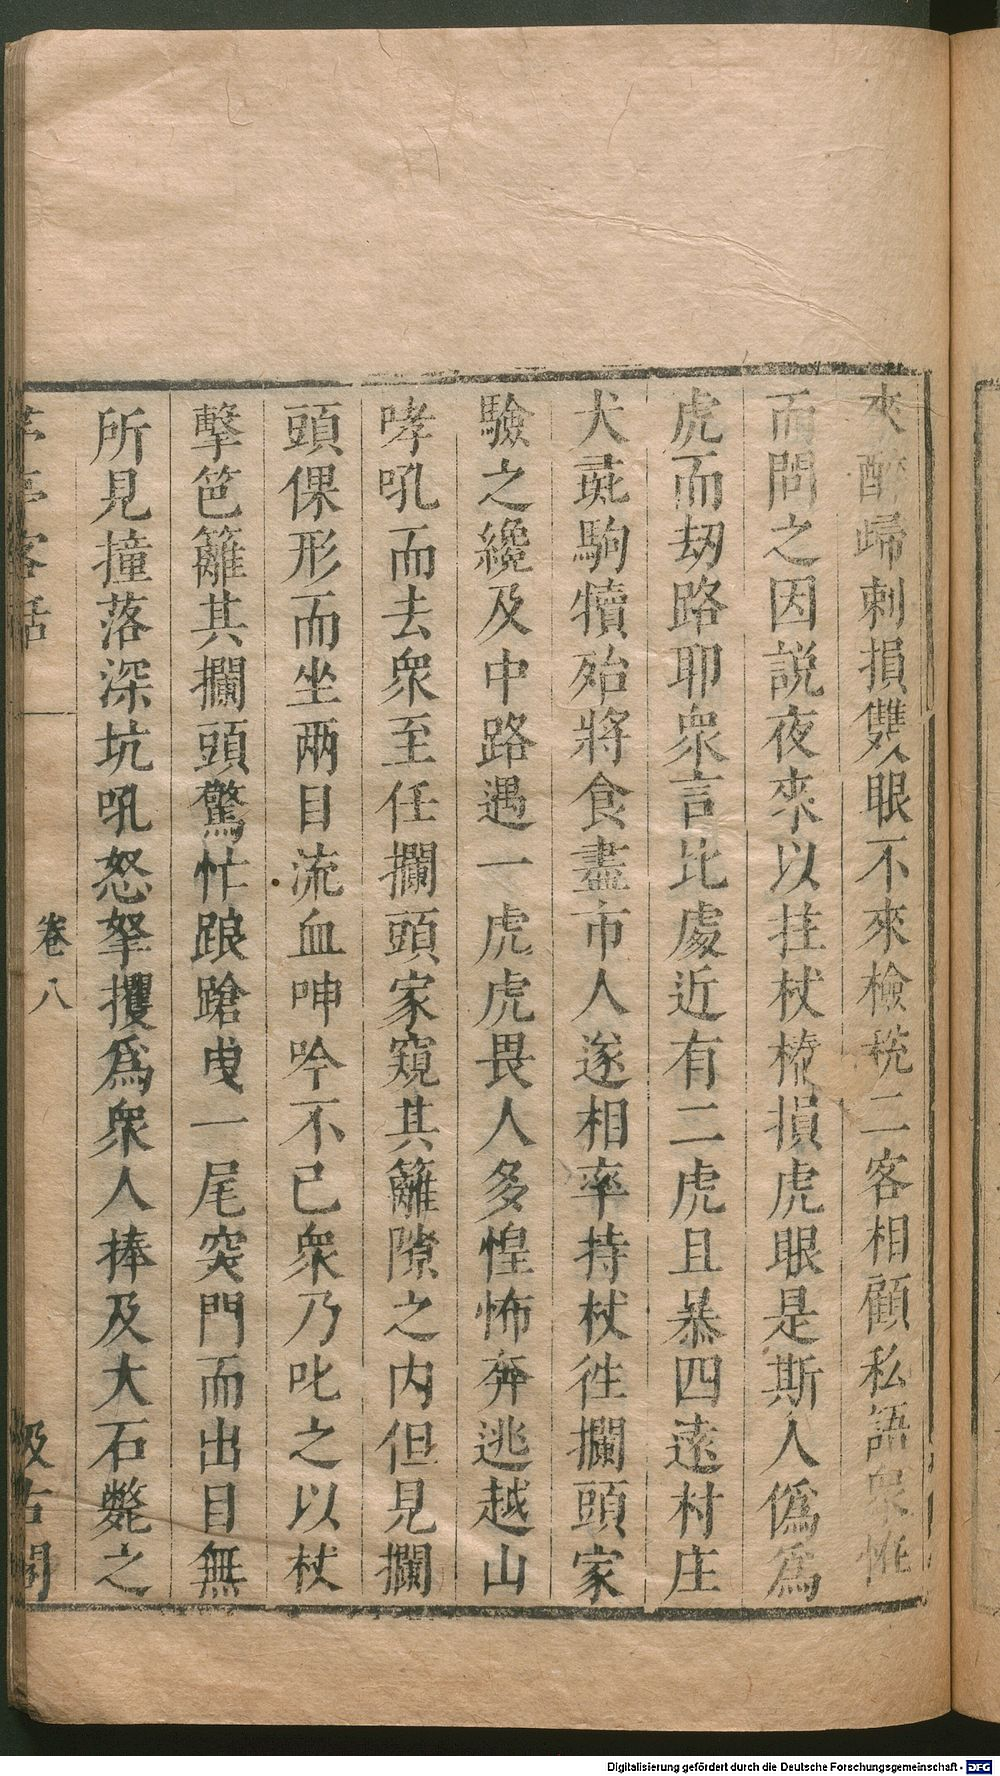 來醉歸刺損雙眼不來檢稅二客相顧私語衆怪
而問之因説夜來以拄杖摏損虎眼是斯人僞爲
虎而刼路耶衆言比處近有二虎且暴四遠村庄
犬彘駒犢殆將食盡市人遂相率持杖徃攔頭家
驗之纔及中路遇一虎虎畏人多惶怖奔逃越山
哮吼而去衆至任攔頭家窺其籬隙之内但見攔
頭倮形而坐兩目流血呻吟不已衆乃叱之以杖
擊笆籬其攔頭驚忙踉蹌曳一尾突門而出目無
所見撞落深坑吼怒拏攫爲衆人捧及大石斃之
茅亭客話
卷八
汲古閣
Digitalisierung gefördert durch die Deutsche Forschungsgemeinschaft - DFG